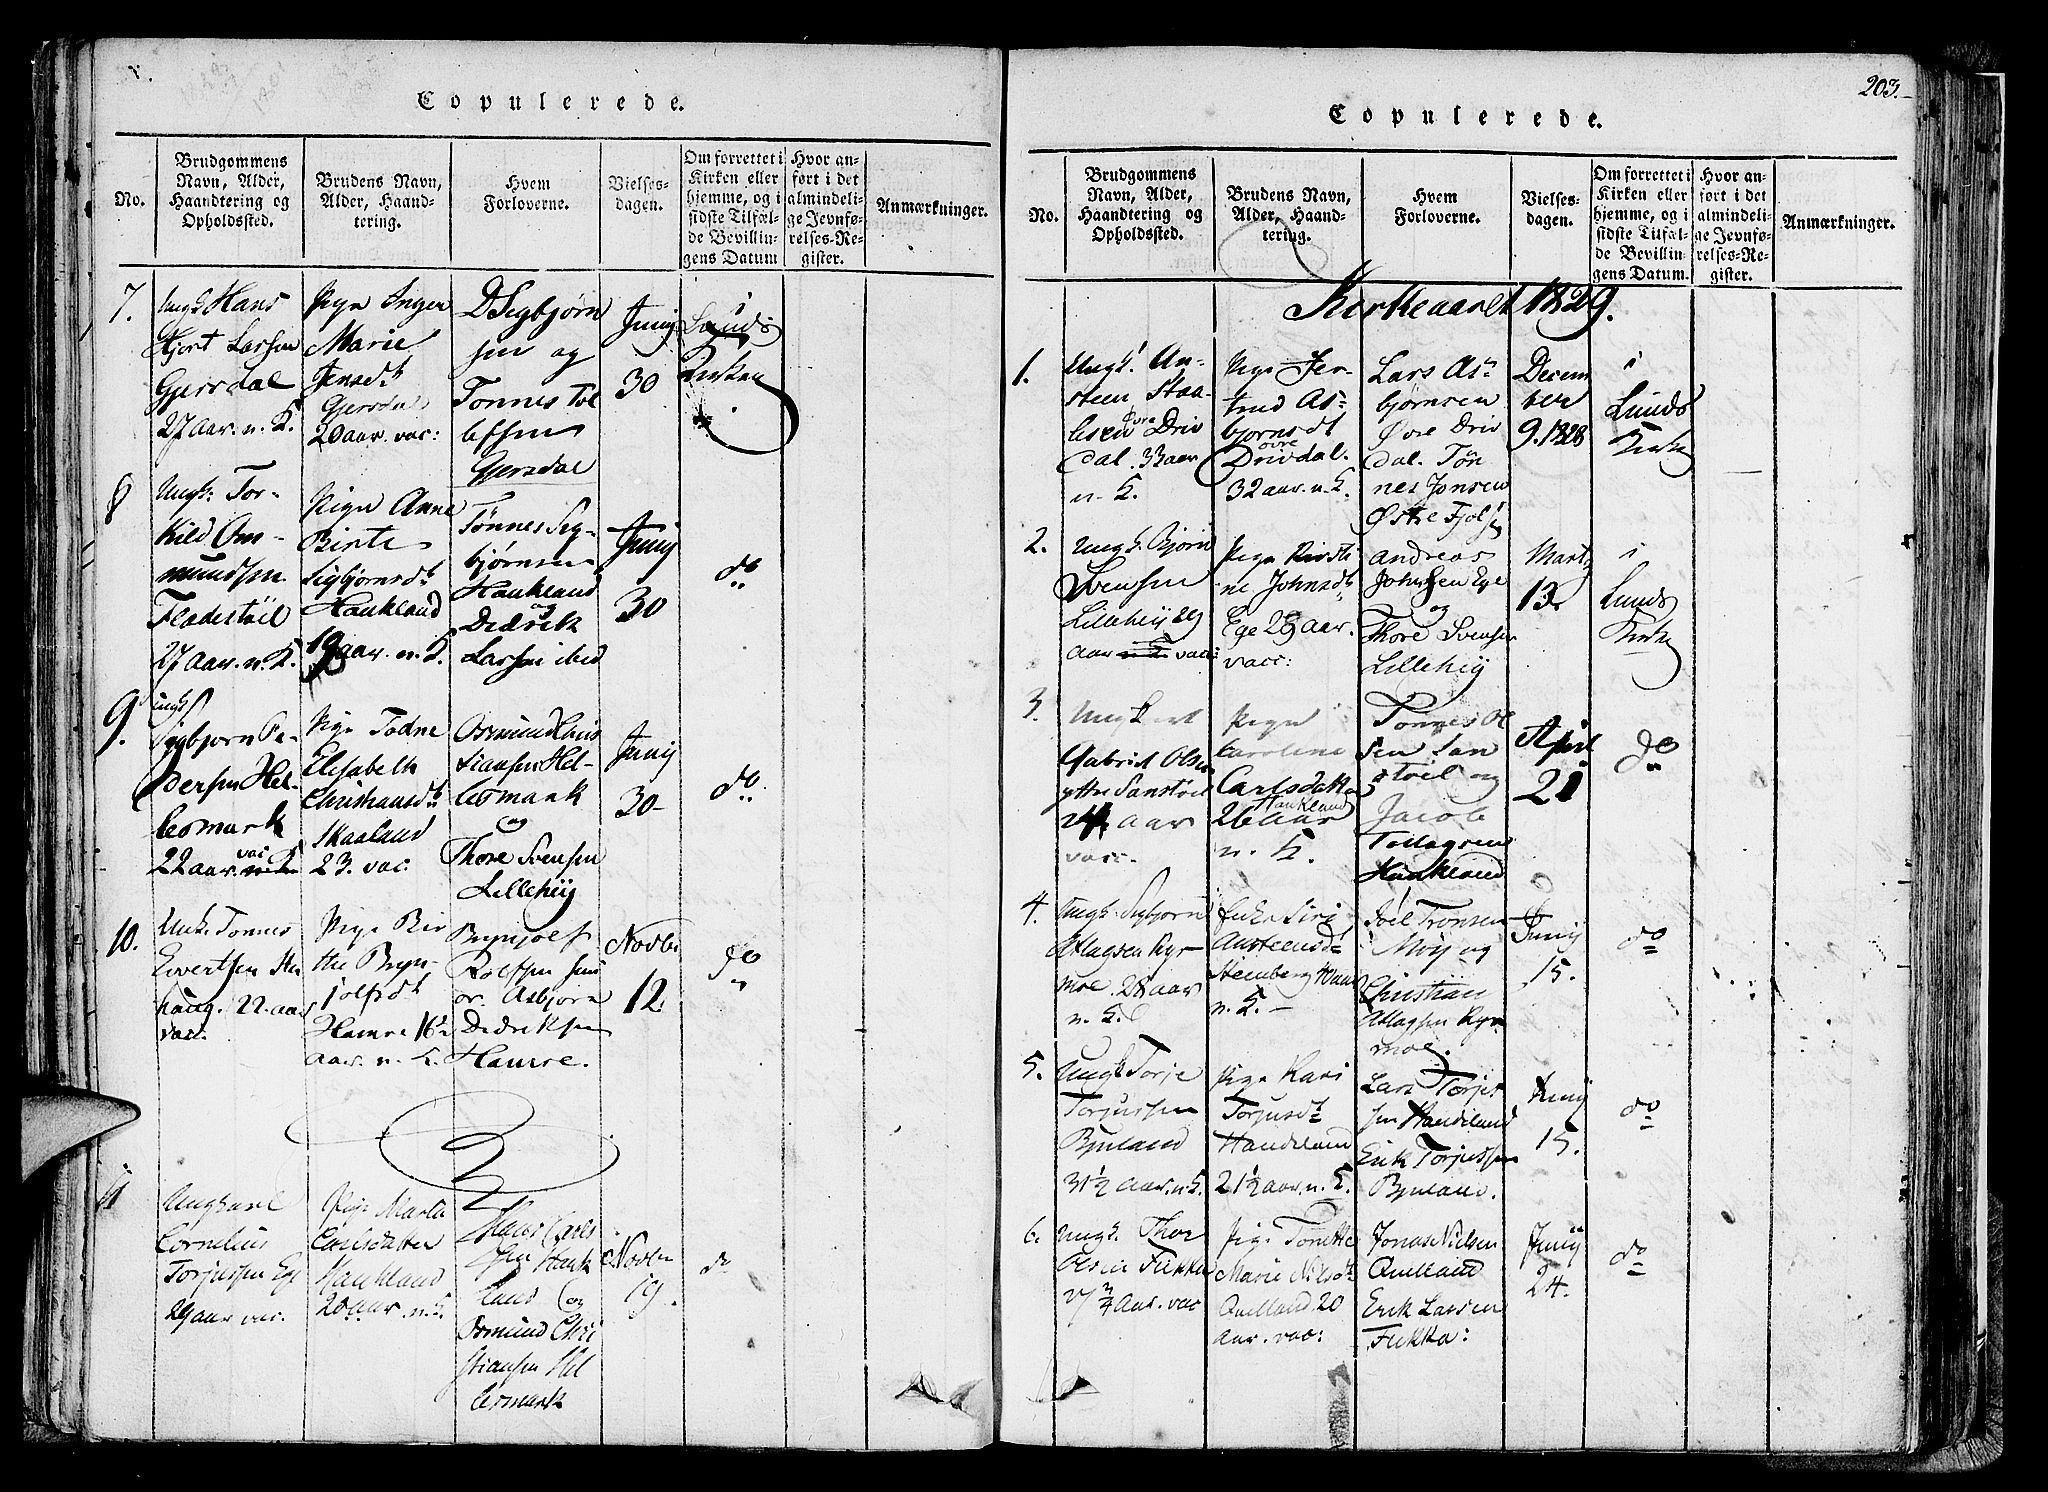 Copulerede.
No.
Brudgommens
Navn, Alder,
Haandtering og
Opholdssted.
Brudens Navn,
Alder, Haand-
tering.
Hvem
Forloverne.
Vielses-
dagen.
Om forrettet i
Kirken eller
hjemme, og i
sidste Tilfæl-
de Bevillin-
gens Datum
Hvor an-
ført i det
almindeli-
ge Jevnfø-
relses-Re-
gister.
Anmærkninger.
7.
Ungk Hans
Hjort Larsen
Gjersdal
27 Aar. n. K.
Pige Inger
Marie
Jensdt
Gjersdal
20 aar. vac:
D Segbjørn
sen og
Tonnes Tol
lefsen
Gjersdal
Junij
30
i
Lunds
Kirken
8
Ungk: Tor-
kild Om-
mundsen
Flodestöil
27 Aar. n. K.
Pige Anne
Birte
Sigbjørnsdt
Haukland
19 aar. n. K.
Tønnes Seg-
bjørnsen
Haukland
og
Dedrik
Larsen ibid
Junij
30
do
9.
ungk
Sigbjørn Pe-
dersen Hel-
lesmark
22 aar. vac
Pige Todne
Elisabeth
Christiansdt
Skaaland
23. vac:
Osmund Chris
tiansen Hel-
lesmark
og
Thore Svensen
Lillehiij
Junij
30
do
10.
Unk. Tonnes
Evertsen Ste
haug. 22 aar
vac:
Pige Bir
the Bryn-
jolfsdt
Hamre 16½
aar. n. K.
Brynjolf
Rolfsen seni
or. Asbjørn
Dedriksen
Hamre.
Novbr
12.
do
11
Ungkarl
Cornelius
Torjussen Ege
29 aar vac.
Pige Marta
Carlsdatter
Haukland
20 aar. n. K
Hans Carls
sen Hauk
land og
Osmund Chri
stiansen Hel
lesmark
Novbr
19.
do
203.
Copulerede.
No.
Brudgommens
Navn, Alder,
Haandtering og
Opholdssted.
Brudens Navn,
Alder, Haand-
tering.
Hvem
Forloverne.
Vielses-
dagen.
Om forrettet i
Kirken eller
hjemme, og i
sidste Tilfæl-
de Bevillin-
gens Datum.
Hvor an-
ført i det
almindeli-
ge Jevnfø-
relses-Re-
gister.
Anmærkninger.
Kirkeaaret 1829.
1.
Ungk. An-
steen Staa-
lesen Øvre Driv
dal. 33 aar
n. K.
Pige Jer-
trud As-
bjørnsdt
øvre
Drivdal.
32 aar. n. K.
Lars As-
bjørnsen
Øvre Driv
dal. Tøn
nes Jonsen
Østre Fjolse
Decem
ber
9. 1828
i
Lunds
Kirke
2.
Ungk. Bjørn
Svensen
Lillehiij 29
aar vac:
Pige Kirsti
ne Johnsdt
Ege 29 aar.
vacc:
Andreas
Johnsen Ege
og
Thore Svensen
Lillehiij
Marts
13
i
Lunds
Kirke
3.
Ungkarl
Gabriel Olsen
yttre Sanstøil
24 aar
vacc.
Pige
Caroline
Carlsdatter
Haukland
26 aar
n. K.
Tonnes Ol
sen San
støil og
Jacob
Tollagsen
Haukland
April
21
do
4.
Ungk. Sigbjorn
Atlagsen Ryr
moe. 28 aar
n. K.
Enke Siri
Austeensdt
Steenberg
n. K.
Joel Tronsen
Moij og
Christian
Atlagsen Ryr
moe.
Junij
15.
do
5.
Ungk Torje
Torjussen
Bjuland
31½ aar. n K.
Pige Kari
Torjusdt
Handeland
21½ aar. n. K.
Lars Torjes
sen Handeland
Erik Torjussen
Bjuland.
Junij
15.
do
6.
Ungk. Thor
Olsen Fukka
27 ¾ Aar. vac
Pige Tonette
Marie Nilsdt
Quelland 20
aar. vac:
Jonas Nielsen
Quelland
Erik Larsen
Fukka:
Junij
24.
do